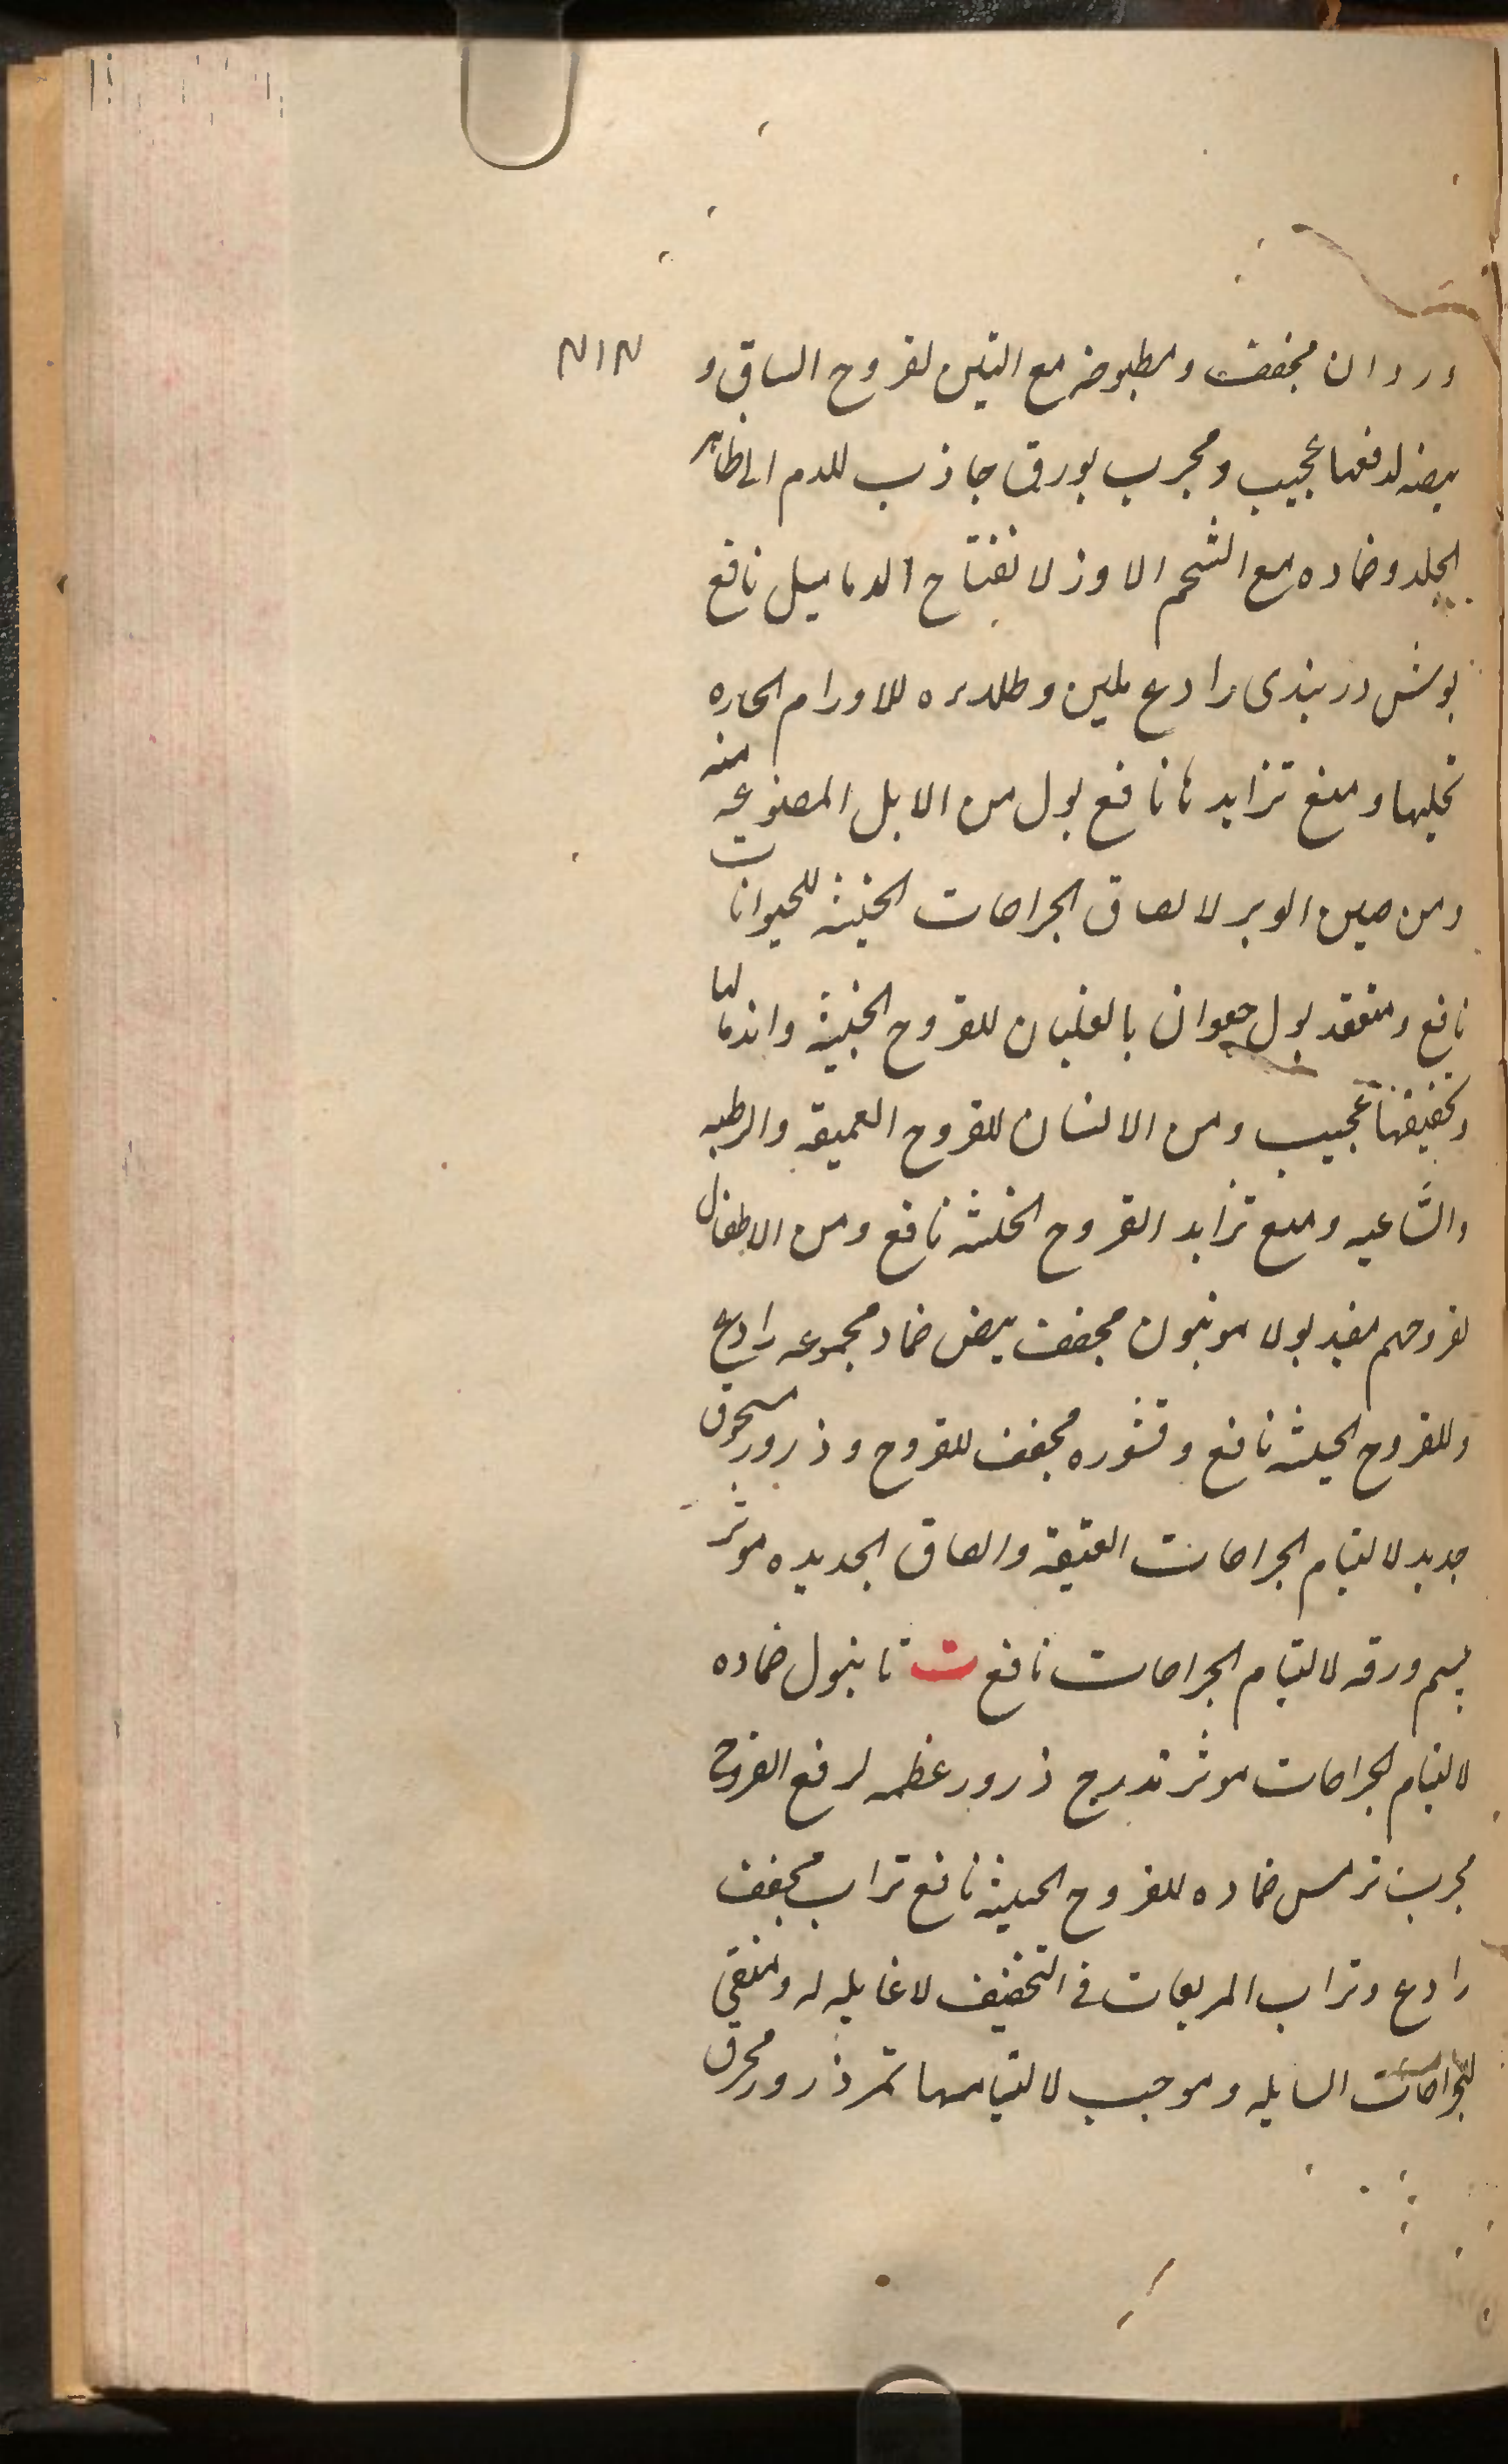 وردان مجفف ومطبوخه مع التين لقروح الساق و
بيضه لدفعها عجيب ومجرب بورق جاذب للدم الى ظاهر
الجلد وضماده مع الشحم الاوز لانفتاح الدماميل نافع
بوش دربندى رادع ملين وطلاءه للاورام الحاره
تحليلها ومنع تزايدها نافع بول من الابل المصنوعه منه
ومن الوبر لالصاق الجراحات الخبيثه للحيوانات
نافع ومنعقد بول بالغليان للقروح الخبيثه واندمالها
وتجفيفها عجيب ومن الانسان للقروح العميقه والرطبه
والساعيه ومنع تزايد القروح الخبيثه نافع ومن الاطفال
لقروحهم مفيد بولامونيون مجفف بيض ضماد مجموعه رادع
وللقروح الخبيثه نافع وقشوره مجفف للقروح وذرور مسحوق
جديد لالتيام الجراحات العتيقه والصاق الجديده موثر
ورقه لالتيام الجراحات نافع ت تانبول ضماده
لالتيام الجراحات موثر تدرج ذرور عظمه لرفع القروح
مجرب ترمس ضماده للقروح الخبيثه نافع تراب مجفف
رادع وتراب المربعات فى التجفيف لا له ومنقى
للجراحات السايله وموجب لالتيامها تمر ذرور محرق